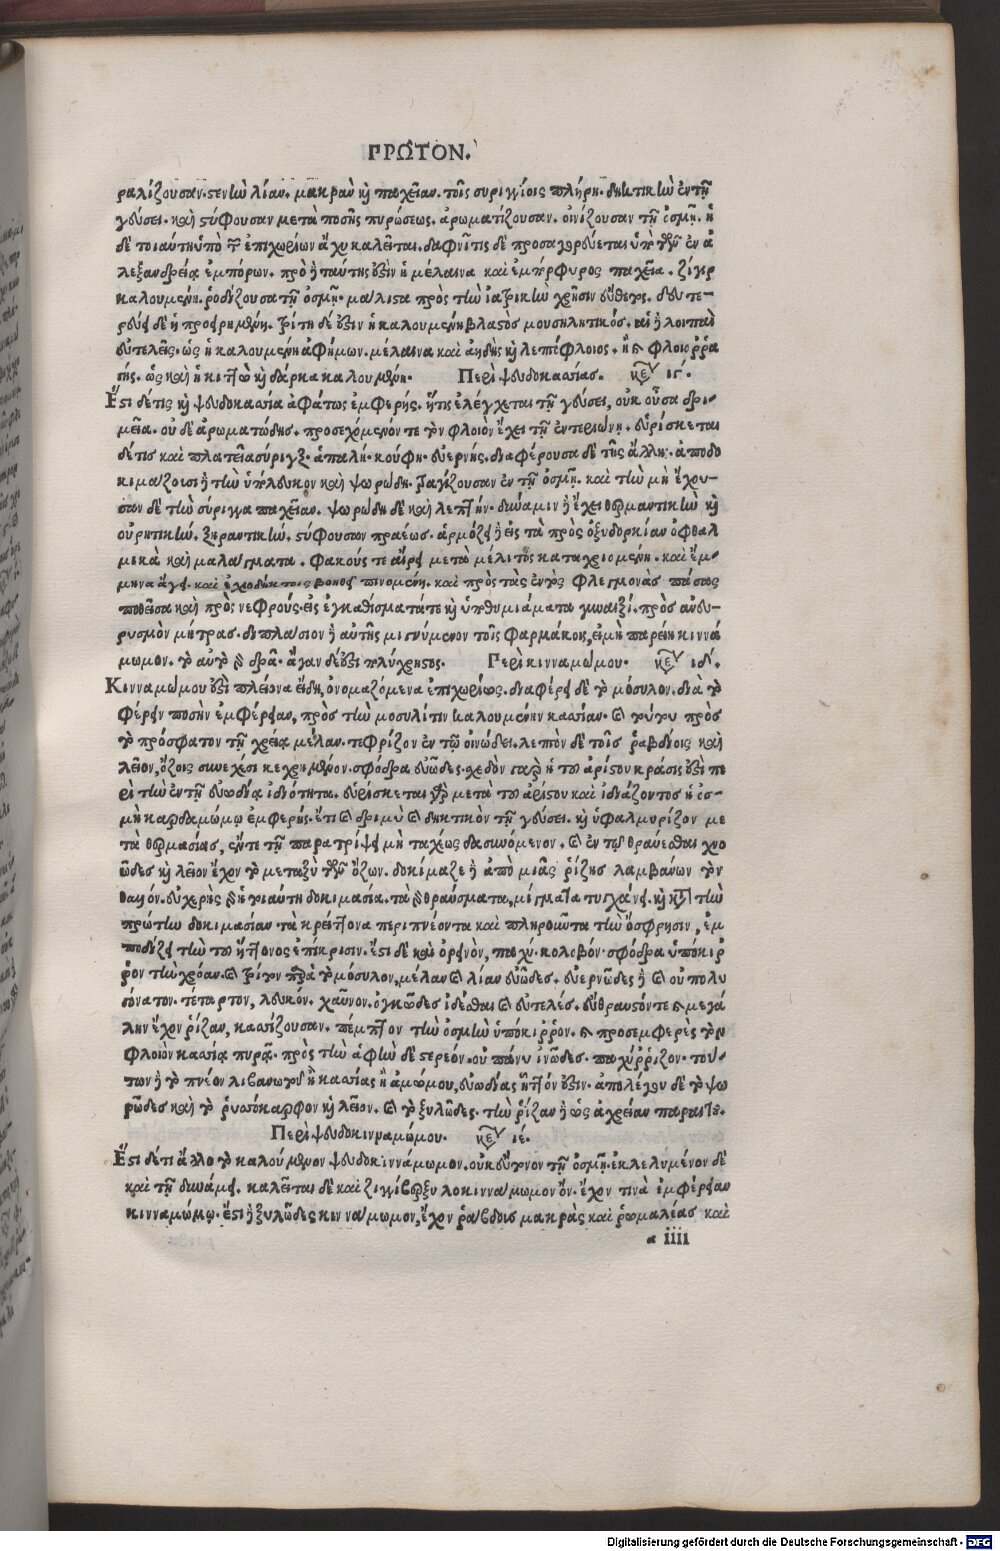 ΠΡΩ͂ΤΟΝ.
ραλίζουσαν. στενὴν λίαν. μακρὰν καὶ παχεῖαν. τοῖς συριγγίοις πλήρη. δηκτικὴν ἐν τῇ
γεύσει. καὶ στύφουσαν μετὰ ποσῆς πυρώσεως. ἀρωματίζουσαν. οἰνίζουσαν τῇ ὀσμῇ. ἡ
δὲ τοιαύτη ὑπὸ τῶν ἐπιχωρίων ἄχυ καλεῖται. δαφνῖτις δὲ προσαγορεύεται ὑπὸ τῶν ἐν ἀ
λεξανδρείᾳ ἐμπόρων. πρὸ δὲ ταύτης ἐστὶν ἡ μέλαινα καὶ ἐμπόρφυρος παχεῖα. ζίγιρ
καλουμένη. ῥοδίζουσα τῇ ὀσμῇ. μάλιστα πρὸς τὴν ἰατρικὴν χρῆσιν εὔθετος. δευτε-
ρεύει δὲ ἡ προειρημένη. τρίτη δέ ἐστιν ἡ καλουμένη βλαστὸς μοσυλητικός. αἱ δὲ λοιπαὶ
εὐτελεῖς. ὡς ἡ καλουμένη ἀφήμων. μέλαινα καὶ ἀηδὴς καὶ λεπτόφλοιος. ἢ καὶ φλοιορρα
γής. ὡς καὶ ἡ κιττὼ καὶ δάρκα καλουμένη. Περὶ ψευδοκασσίας. κεφ ιγ΄.
Ἔστι δέ τις καὶ ψευδοκασσία ἀφάτως ἐμφερής. ἥτις ἐλέγχεται τῇ γεύσει, οὐκ οὖσα δρι-
μεῖα. οὐδὲ ἀρωματώδης. προσεχόμενόν τε τὸν φλοιὸν ἔχει τῇ ἐντεριώνῃ. εὑρίσκεται
δέ τις καὶ πλατεῖα σύριγξ. ἁπαλή. κούφη. εὐερνής. διαφέρουσα δὲ τῆς ἄλλης. ἀποδο
κιμάζοις δὲ τὴν ὑπόλευκον καὶ ψωρώδη. τραγίζουσαν ἐν τῇ ὀσμῇ. καὶ τὴν μὴ ἔχου-
σαν δὲ τὴν σύριγγα παχεῖαν. ψωρώδη δὲ καὶ λεπτήν. δύναμιν δὲ ἔχει θερμαντικὴν καὶ
οὐρητικὴν. ξηραντικὴν. στύφουσαν πραέως. ἁρμόζει δὲ εἰς τὰ πρὸς ὀξυδορκίαν ὀφθαλ
μικὰ καὶ μαλάγματα. φακούς τε αἴρει μετὰ μέλιτος καταχριομένη. καὶ ἔμ-
μηνα ἄγει. καὶ ἐχιοδήκτοις βοηθεῖ πινομένη. καὶ πρὸς τὰς ἐντὸς φλεγμονὰς πάσας
ποθεῖσα καὶ πρὸς νεφρούς. εἰς ἐγκαθίσματά τε καὶ ὑποθυμιάματα γυναιξί. πρὸς ἀνευ-
ρυσμὸν μήτρας. διπλάσιον δὲ αὐτῆς μιγνύμενον τοῖς φαρμάκοις, εἰ μὴ παρείη κιννά
μωμον. τὸ αὐτὸ δὲ δρᾷ. ἄγαν δέ ἐστι πολύχρηστος. Περὶ κινναμώμου. κεφ ιδ΄.
Κινναμώμου ἐστὶ πλείονα εἴδη, ὀνομαζόμενα ἐπιχωρίως. διαφέρει δὲ τὸ μόσυλον. διὰ τὸ
φέρειν ποσὴν ἐμφέρειαν, πρὸς τὴν μοσυλῖτιν καλουμένην κασσίαν. καὶ τούτου πρὸς
τὸ πρόσφατον τῇ χρείᾳ μέλαν. τεφρίζον ἐν τῷ οἰνώδει. λεπτὸν δὲ τοῖς ῥαβδίοις καὶ
λεῖον, ὄζοις συνεχέσι κεχρημένον. σφόδρα εὐῶδες. σχεδὸν γὰρ ἡ τοῦ ἀρίστου κρᾶσις ἐστὶ πε
ρὶ τὴν ἐν τῇ εὐωδίᾳ ἰδιότητα. εὑρίσκεται γὰρ μετὰ τοῦ ἀρίστου καὶ ἰδιάζοντος ἡ ὀσ-
μὴ καρδαμώμῳ ἐμφερής. ἔτι καὶ δριμὺ καὶ δηκτικὸν τῇ γεύσει. καὶ ὑφαλμυρίζον με
τὰ θερμασίας, ἔν τε τῇ παρατρίψει μὴ ταχέως δασυνόμενον. καὶ ἐν τῷ θραύεσθαι χνο
ῶδες καὶ λεῖον ἔχον τὸ μεταξὺ τῶν ὄζων. δοκίμαζε δὲ ἀπὸ μιᾶς ῥίζης λαμβάνων τὸν
θαλλόν. εὐχερὴς γὰρ ἡ τοιαύτη δοκιμασία. τὰ γὰρ θραύσματα, μίγματα τυγχάνει. καὶ κατὰ τὴν
πρώτην δοκιμασίαν. τὰ κρείττονα περιπνέοντα καὶ πληροῦντα τὴν ὄσφρησιν, ἐμ
ποδίζει τὴν τοῦ ἥττονος ἐπίκρισιν. ἔστι δὲ καὶ ὀρεινὸν, παχύ. κολοβόν. σφόδρα ὑπόκιρ
ρον τὴν χρόαν. καὶ τρίτον παρὰ τὸ μόσυλον, μέλαν καὶ λίαν εὐῶδες. εὐερνῶδες δὲ καὶ οὐ πολυ
γόνατον. τέταρτον, λευκόν. χαῦνον. ὀγκῶδες ἰδέσθαι καὶ εὐτελές. εὔθραυστόν τε καὶ μεγά
λην ἔχον ῥίζαν, κασσίζουσαν. πέμπτον τὴν ὀσμὴν ὑπόκιρρον. καὶ προσεμφερὲς τὸν
φλοιὸν κασσίᾳ πυρρᾷ. πρὸς τὴν ἁφὴν δὲ στερεόν. οὐ πάνυ ἰνῶδες. παχύρριζον. τού-
των δὲ τὸ πνέον λιβανωτοῦ ἢ κασσίας ἢ ἀμώμου, εὐωδίας ἧττόν ἐστιν. ἀπολέγου δὲ τὸ ψω
ρῶδες καὶ τὸ ῥυσόκαρφον καὶ λεῖον. καὶ τὸ ξυλῶδες. τὴν ῥίζαν δὲ ὡς ἀχρείαν παραιτοῦ.
Περὶ ψευδοκινναμώμου. κεφ ιέ.
Ἔστι δέ τι ἄλλο τὸ καλούμενον ψευδοκιννάμωμον. οὐκ εὔτονον τῇ ὀσμῇ. ἐκλελυμένον δὲ
καὶ τῇ δυνάμει. καλεῖται δὲ καὶ ζιγγίβερ ξυλοκιννάμωμον ὄν. ἔχον τινὰ ἐμφέρειαν
κινναμώμῳ. ἔστι δὲ ξυλῶδες κιννάμωμον, ἔχον ῥάβδους μακρὰς καὶ ῥωμαλέας καὶ
a iiii
Digitalisierung gefördert durch die Deutsche Forschungsgemeinschaft - DFG